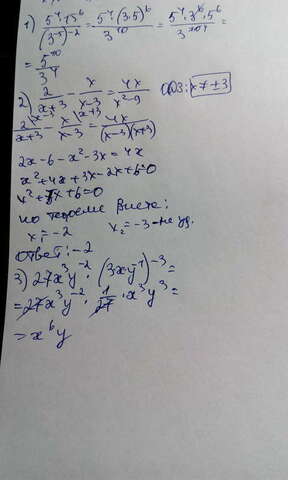 1) 5⁴·15⁶/(3⁻⁵)⁻² = 5⁴(3·5)⁶/3¹⁰ = 5⁴·3⁶·5⁶/3¹⁰ =
= 5¹⁰/3⁴
2) 2/(x+3) - x/(x-3) = 4x/(x²-9) ОДЗ: x≠±3
2\ˣ⁻³/(x+3) - x\ˣ⁺³/(x-3) = 4x/((x-3)(x+3))
2x-6-x²-3x=4x
x²+4x+3x-2x+6=0
x²+5x+6=0
по теореме Виета:
x₁=-2 x₂=-3 - не уд.
Ответ: -2
3) 27x³y⁻² · (3xy⁻¹)⁻³ =
= 27x³y⁻² · 1/27 · x³y³ =
= x⁶y